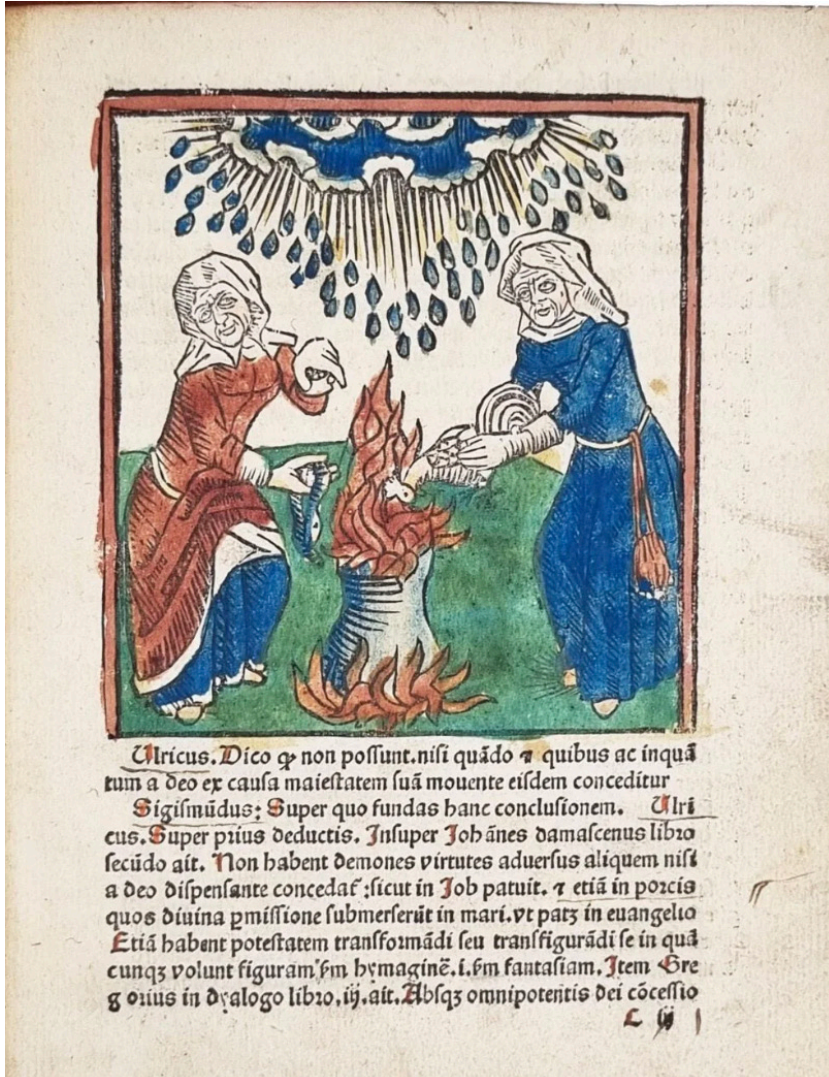 Ulricus. Dico ꝙ non possunt. nisi quādo ⁊ quibus ac inquā
tum a deo ex causa maiestatem suā mouente eisdem conceditur
Sigismūdus: Super quo fundas hanc conclusionem. Ulri
cus. Super prius deductis. Insuper Johānes damascenus libro
secūdo ait. Non habent demones virtutes aduersus aliquem nisi
a deo dispensante concedat᷑ : sicut in Job patuit. ⁊ etiā in porcis
quos diuina ꝑmissione submerserūt in mari. vt patꝫ in euangelio
Etiā habent potestatem transformādi seu transfigurādi se in quā
cunqꝫ volunt figuram ẜm hymaginē. i. ẜm fantasiam. Item Gre
gorius in dyalogo libro. iij. ait. Absqꝫ omnipotētis dei cōcessio